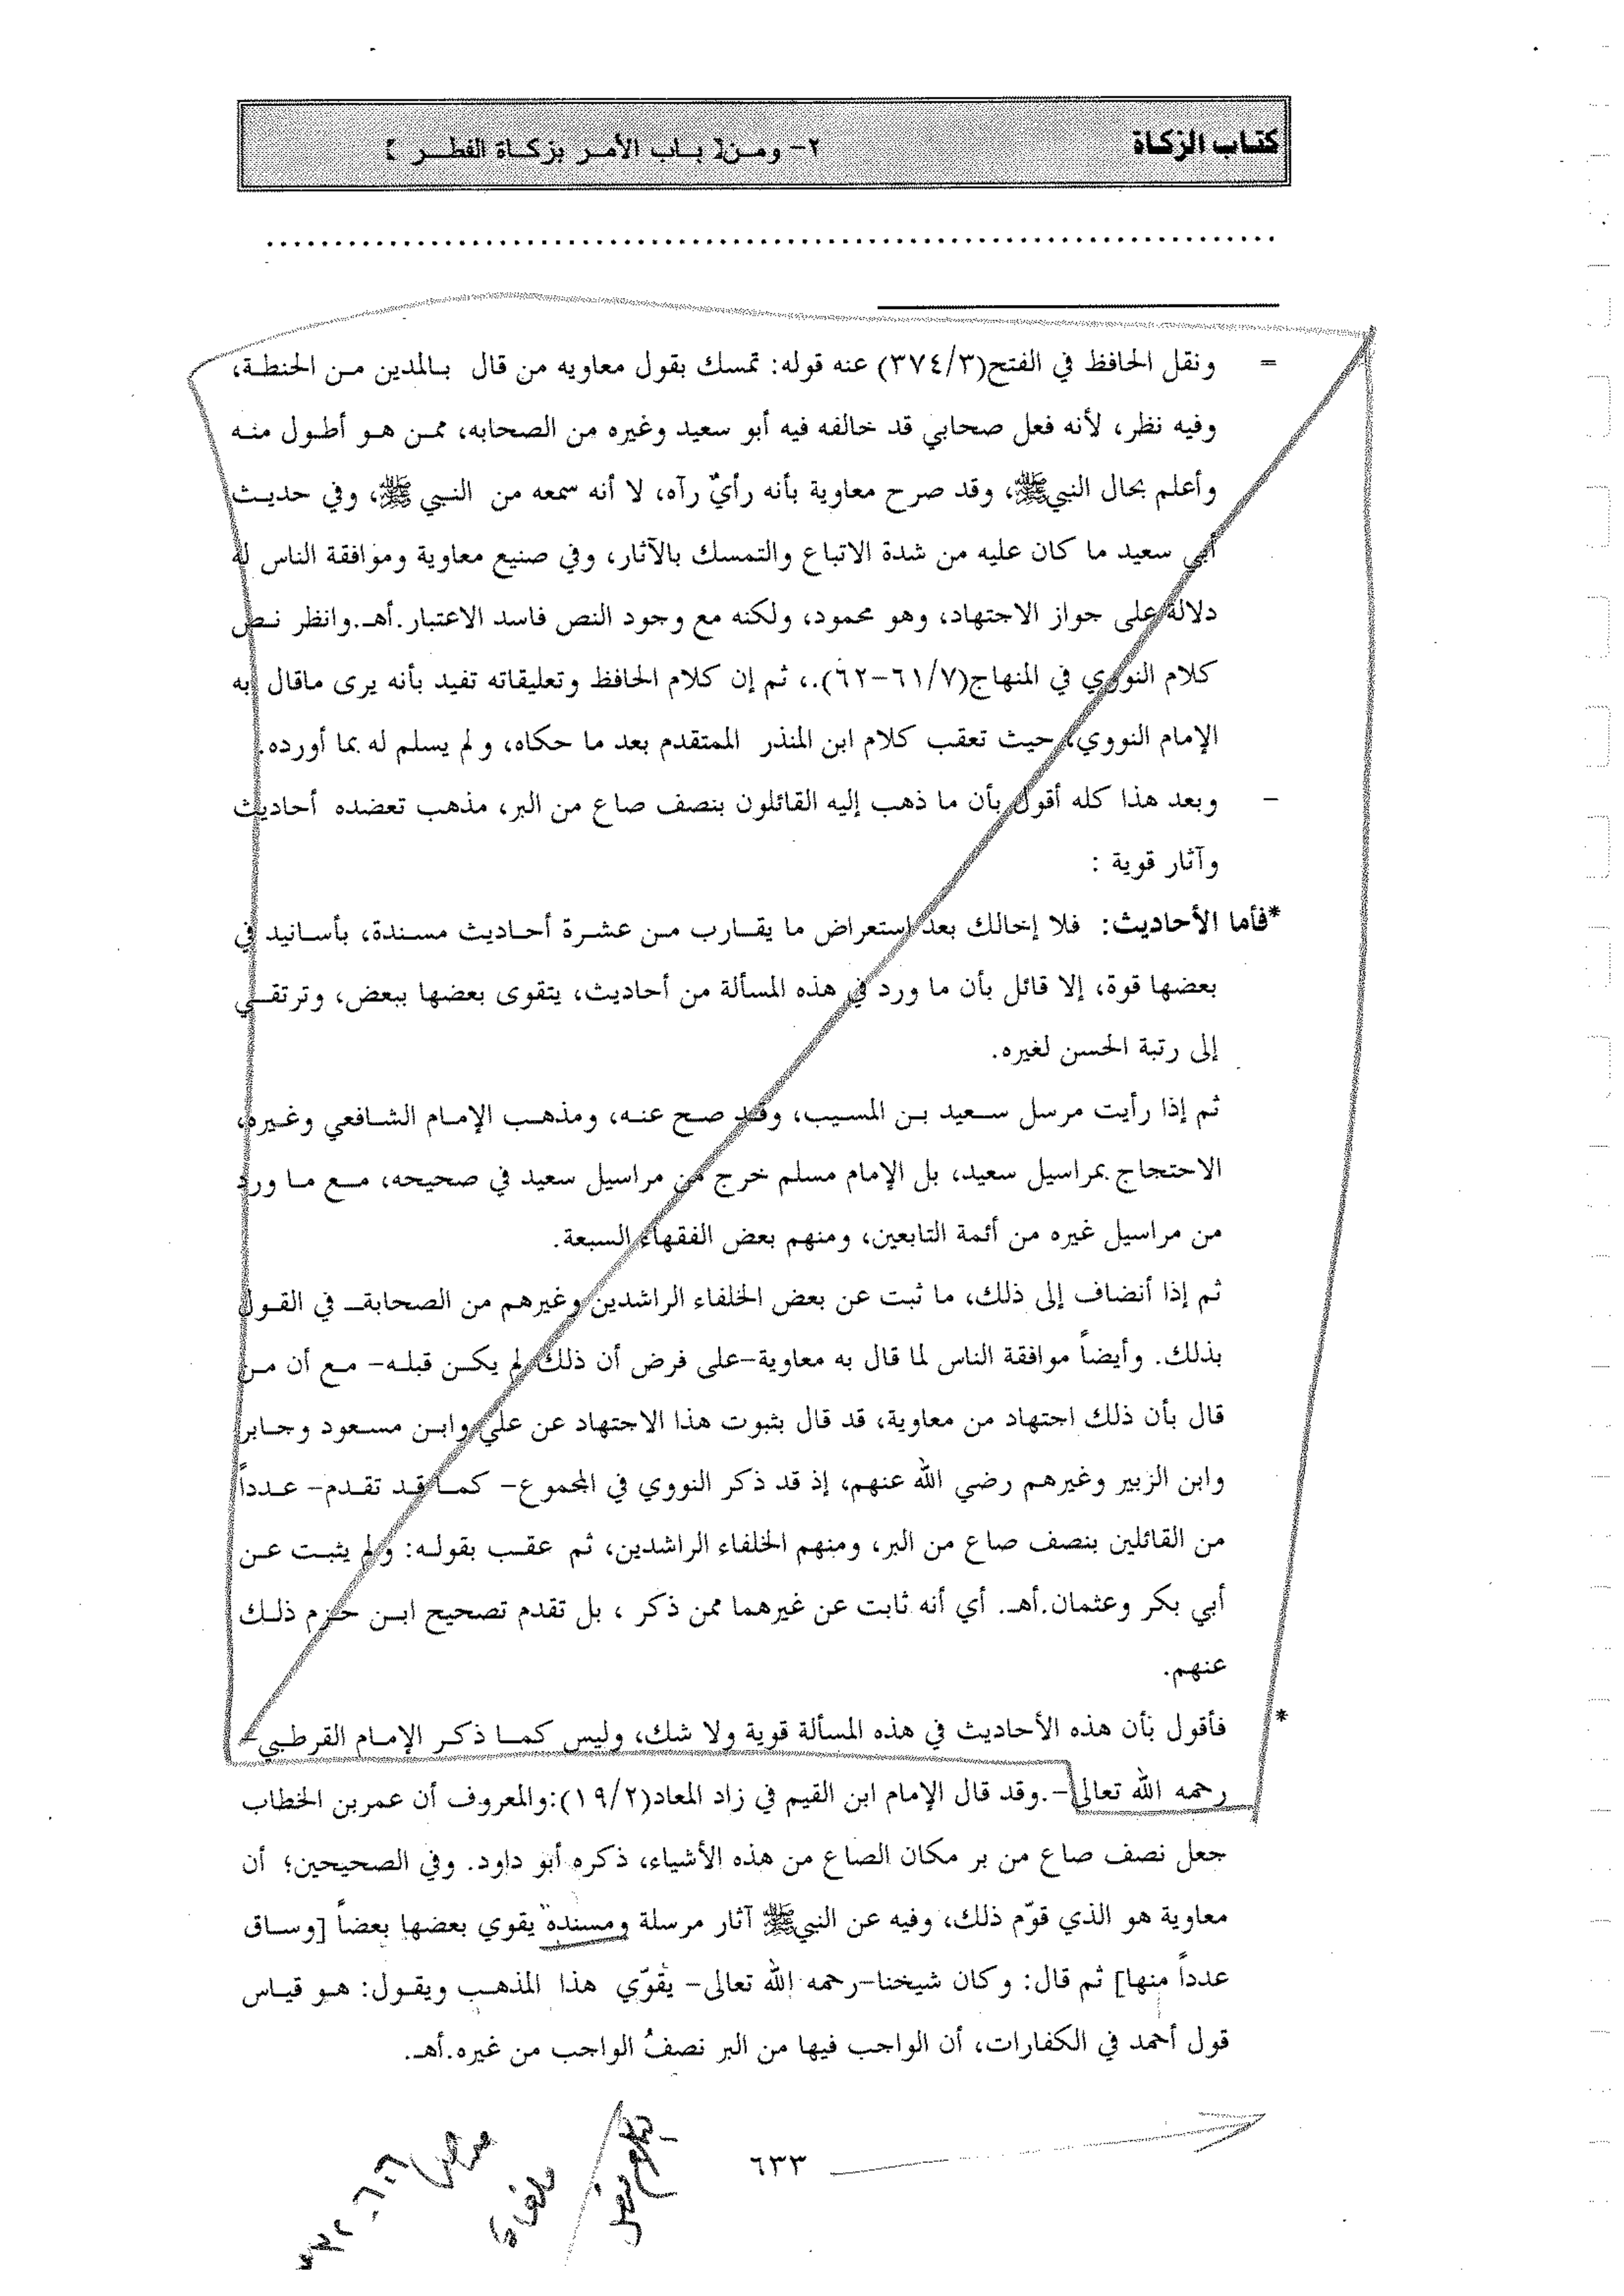 كتاب الزكاة
٢- ومن[ باب الأمر بزكاة الفطر ]
= ونقل الحافظ في الفتح(٣٧٤/٣) عنه قوله: تمسك بقول معاويه من قال بالمدين من الحنطة،
وفيه نظر، لأنه فعل صحابي قد خالفه فيه أبو سعيد وغيره من الصحابه، ممن هو أطول منه
وأعلم بحال النبيﷺ، وقد صرح معاوية بأنه رأيٌ رآه، لا أنه سمعه من النبي ﷺ، وفي حديث
أبي سعيد ما كان عليه من شدة الاتباع والتمسك بالآثار، وفي صنيع معاوية وموافقة الناس له
دلالة على جواز الاجتهاد، وهو محمود، ولكنه مع وجود النص فاسد الاعتبار.أهـ.وانظر نص
كلام النووي في المنهاج(٦١/٧-٦٢).، ثم إن كلام الحافظ وتعليقاته تفيد بأنه يرى ماقال به
الإمام النووي، حيث تعقب كلام ابن المنذر المتقدم بعد ما حكاه، ولم يسلم له بما أورده.
- وبعد هذا كله أقول بأن ما ذهب إليه القائلون بنصف صاع من البر، مذهب تعضده أحاديث
وآثار قوية :
*فأما الأحاديث: فلا إخالك بعد استعراض ما يقارب من عشرة أحاديث مسندة، بأسانيد في
بعضها قوة، إلا قائل بأن ما ورد في هذه المسألة من أحاديث، يتقوى بعضها ببعض، وترتقي
إلى رتبة الحسن لغيره.
ثم إذا رأيت مرسل سعيد بن المسيب، وقد صح عنه، ومذهب الإمام الشافعي وغيره،
الاحتجاج بمراسيل سعيد، بل الإمام مسلم خرج من مراسيل سعيد في صحيحه، مع ما ورد
من مراسيل غيره من أئمة التابعين، ومنهم بعض الفقهاء السبعة.
ثم إذا أنضاف إلى ذلك، ما ثبت عن بعض الخلفاء الراشدين وغيرهم من الصحابةـ في القول
بذلك. وأيضاً موافقة الناس لما قال به معاوية-على فرض أن ذلك لم يكن قبله- مع أن من
قال بأن ذلك اجتهاد من معاوية، قد قال بثبوت هذا الاجتهاد عن علي وابن مسعود وجابر
وابن الزبير وغيرهم رضي الله عنهم، إذ قد ذكر النووي في المجموع- كما قد تقدم- عدداً
من القائلين بنصف صاع من البر، ومنهم الخلفاء الراشدين، ثم عقب بقوله: ولم يثبت عن
أبي بكر وعثمان.أهـ. أي أنه ثابت عن غيرهما ممن ذكر ، بل تقدم تصحيح ابن حزم ذلك
عنهم.
* فأقول بأن هذه الأحاديث في هذه المسألة قوية ولا شك، وليس كما ذكر الإمام القرطبي-
رحمه الله تعالى-.وقد قال الإمام ابن القيم في زاد المعاد(١٩/٢):والمعروف أن عمربن الخطاب
جعل نصف صاع من بر مكان الصاع من هذه الأشياء، ذكره أبو داود. وفي الصحيحين؛ أن
معاوية هو الذي قوّم ذلك، وفيه عن النبيﷺ آثار مرسلة ومسنده يقوي بعضها بعضاً [وساق
عدداً منها] ثم قال: وكان شيخنا-رحمه الله تعالى- يقوّي هذا المذهب ويقول: هو قياس
قول أحمد في الكفارات، أن الواجب فيها من البر نصفُ الواجب من غيره.أهـ.
٦٣٣